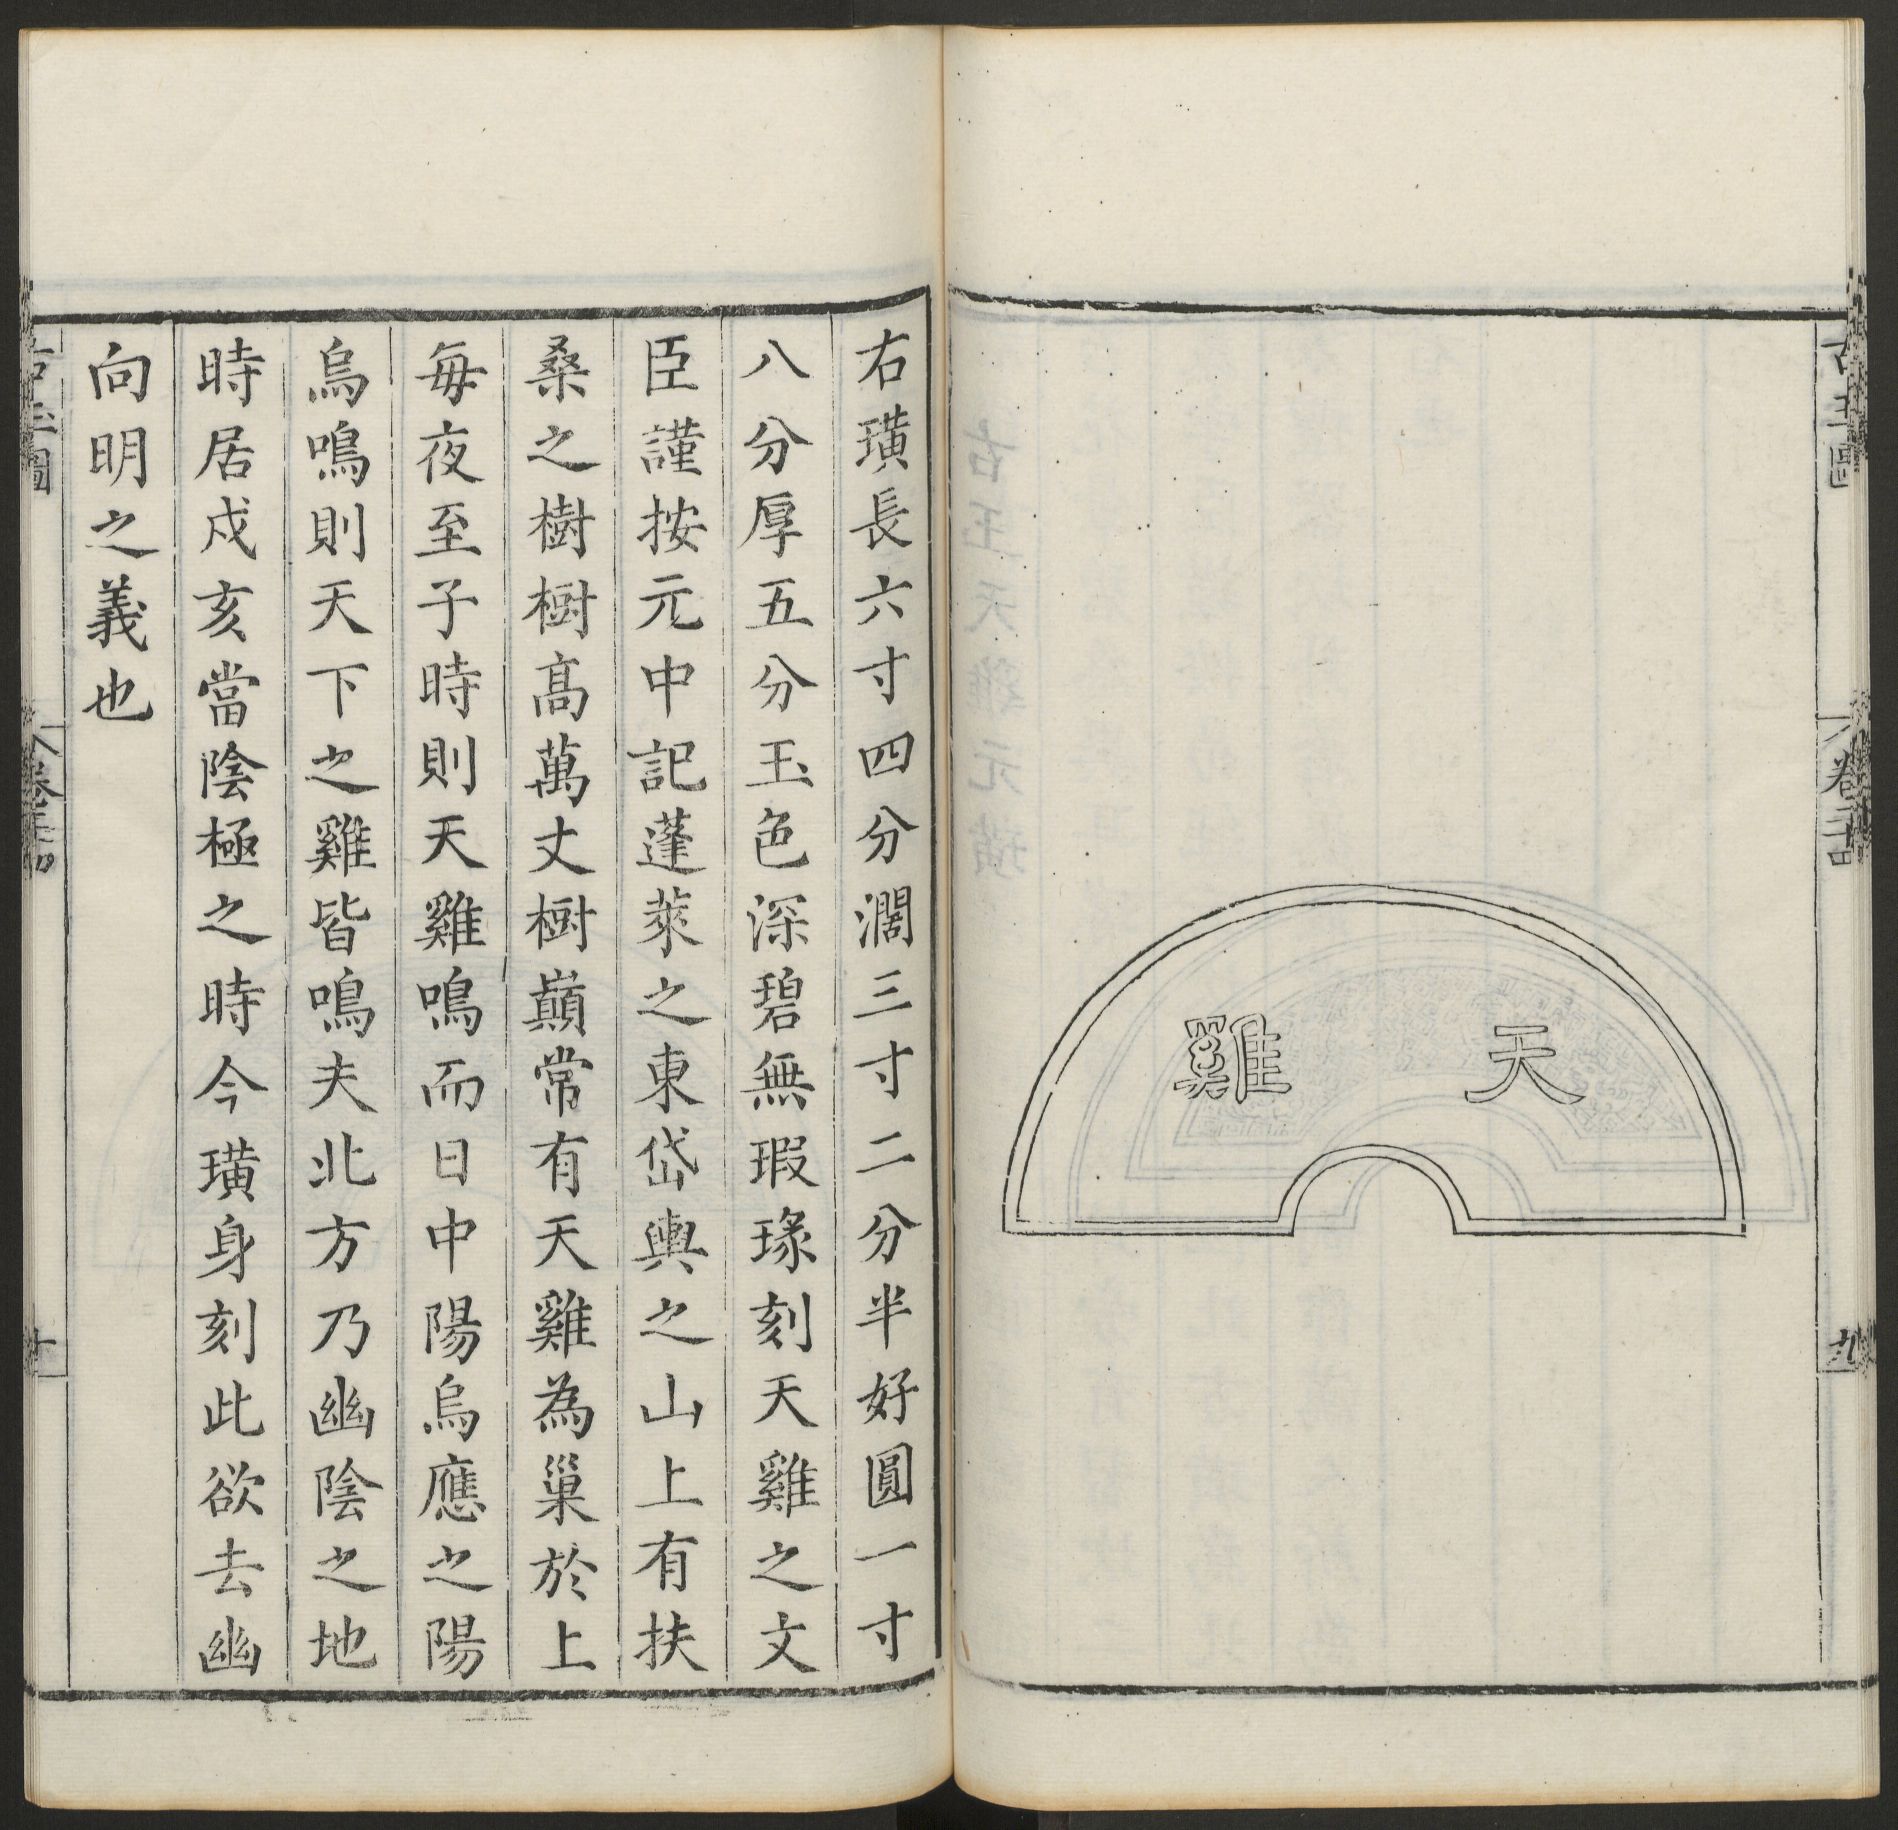 天雞
古玉圖
卷
九
右璜長六寸四分濶三寸二分半好圓一寸
八分厚五分玉色深碧無瑕瑑刻天雞之文
臣謹按元中記蓬萊之東岱輿之山上有扶
桑之樹樹高萬丈樹巔常有天雞為巢於上
每夜至子時則天雞鳴而日中陽烏應之陽
烏鳴則天下之雞皆鳴夫北方乃幽陰之地
時居戌亥當陰極之時今璜身刻此欲去幽
向明之義也
古玉圖
卷
十